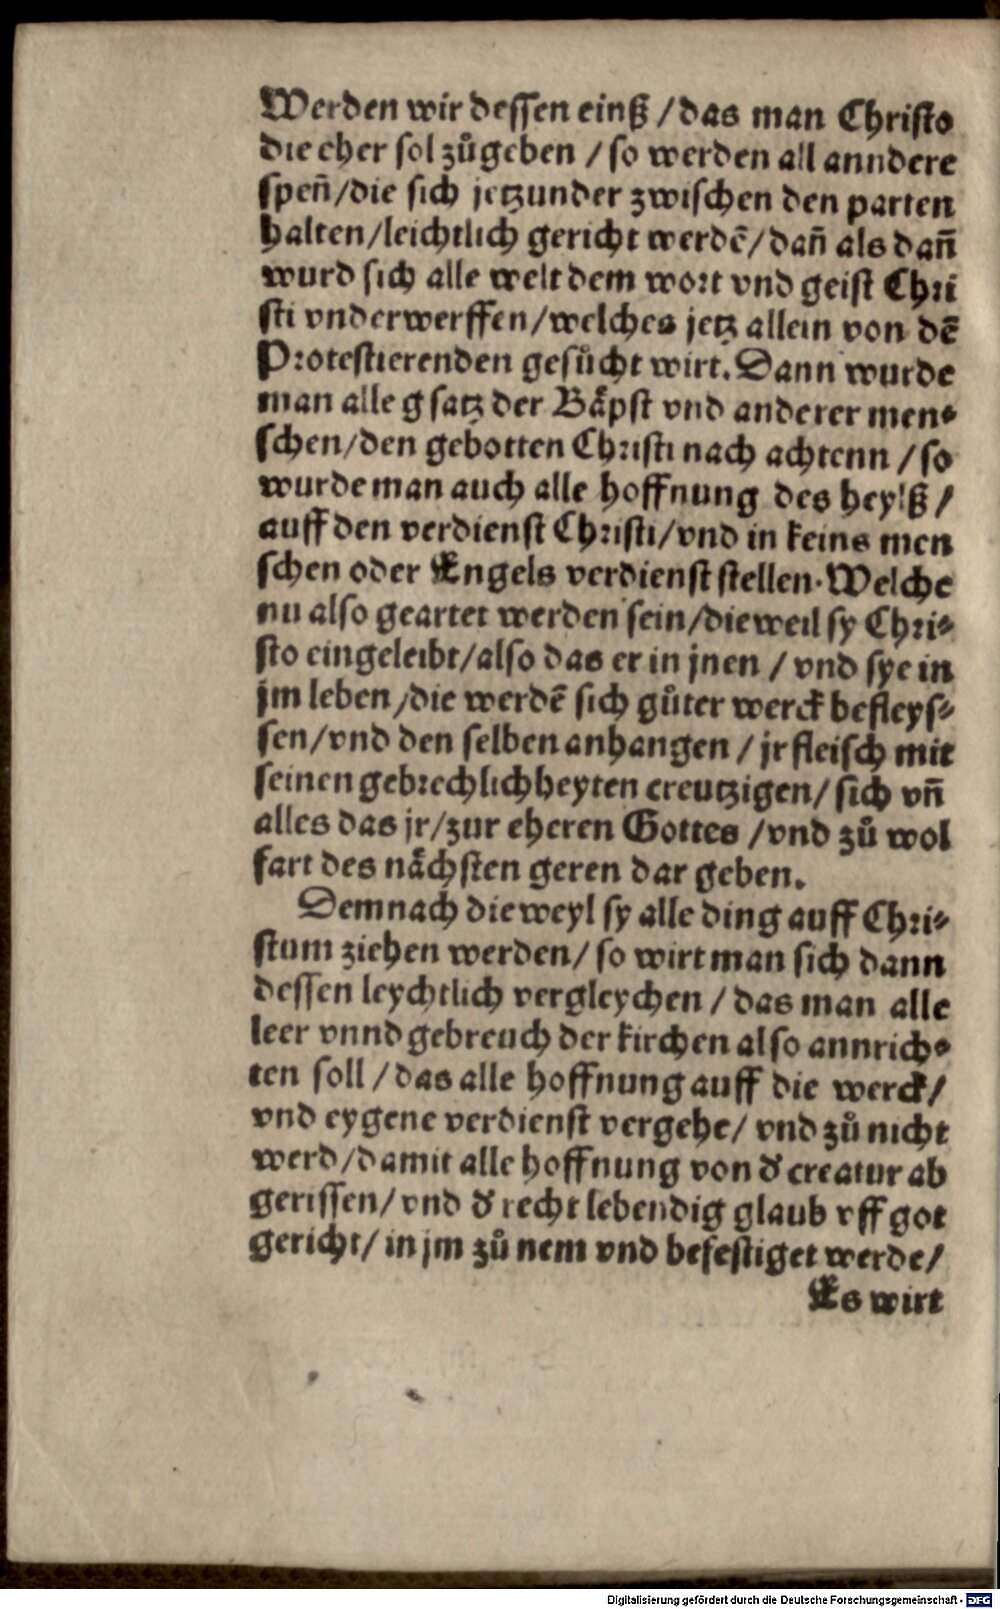 Werden wir dessen einß / das man Christo
die eher sol zůgeben / so werden all anndere
speñ / die sich jetzunder zwischen den parten
halten / leichtlich gericht werdẽ / dañ als dañ
wurd sich alle welt dem wort vnd geist Chri
sti vnderwerffen / welches jetz allein von dẽ
Protestierenden gesůcht wirt. Dann wurde
man alle gsatz der Bäpst vnd anderer men⸗
schen / den gebotten Christi nach achtenn / so
wurde man auch alle hoffnung des heylß /
auff den verdienst Christi / vnd in keins men
schen oder Engels verdienst stellen. Welche
nu also geartet werden sein / dieweil sy Chri⸗
sto eingeleibt / also das er in jnen / vnd sye in
jm leben / die werdẽ sich gůter werck befleys⸗
sen / vnd den selben anhangen / jr fleisch mit
seinen gebrechlichheyten creutzigen / sich vñ
alles das jr / zur eheren Gottes / vnd zů wol
fart des nächsten geren dar geben.
Demnach die weyl sy alle ding auff Chri⸗
stum ziehen werden / so wirt man sich dann
dessen leychtlich vergleychen / das man alle
leer vnnd gebreuch der kirchen also annrich⸗
ten soll / das alle hoffnung auff die werck /
vnd eygene verdienst vergehe / vnd zů nicht
werd / damit alle hoffnung von d' creatur ab
gerissen / vnd d' recht lebendig glaub vff got
gericht / in jm zů nem vnd befestiget werde /
Es wirt
Digitalisierung gefördert durch die Deutsche Forschungsgemeinschaft - DFG